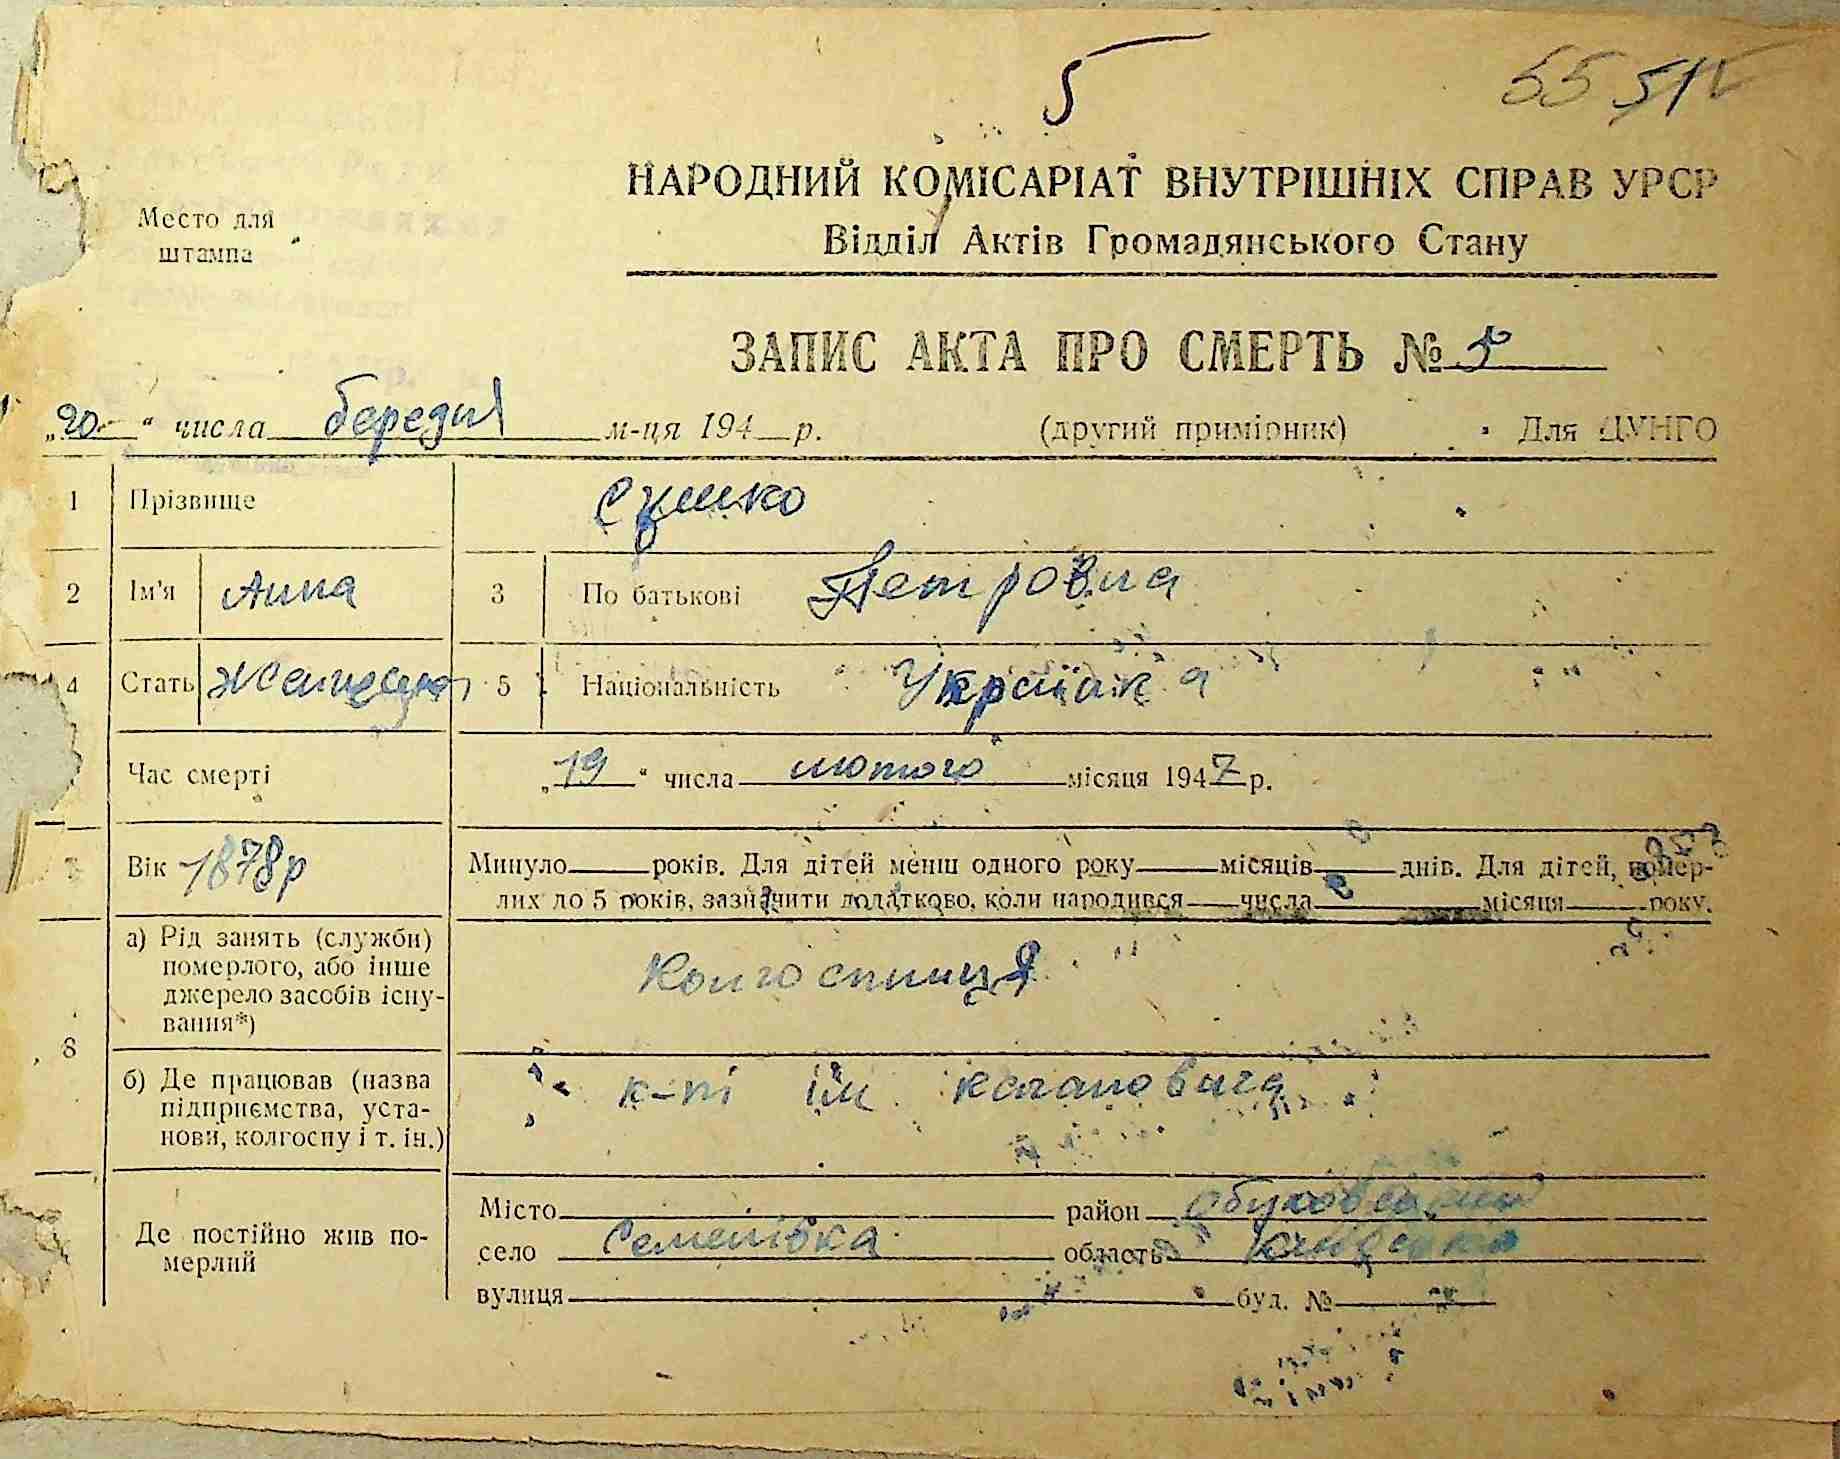 5
55 51
НАРОДНИЙ КОМІСАРІАТ ВНУТРІШНІХ СПРАВ УРСР
Место для штампа
Відділ Актів Громадянського Стану
ЗАПИС АКТА ПРО СМЕРТЬ № 5
„20“ числа березня м-ця 194 р. (другий примірник) Для ЦУНГО
1 Прізвище Сушко
2 Ім'я Анна 3 По батькові Петровна
4 Стать 5 Національність Українка
Час смерті „19“ числа лютого місяця 1947 р.
Вік 1878р Минуло років. Для дітей менш одного року місяців днів. Для дітей, помер-
лих до 5 років, зазначити додатково, коли народився числа місяця року.
8 а) Рід занять (служби)
померлого, або інше
джерело засобів існу-
вання*)
Колгоспниця
б) Де працював (назва
підприємства, уста-
нови, колгоспу і т. ін.)
к-п ім кагановича
Де постійно жив по-
мерлий
Місто район Обуховський
село Семенівка область Київська
вулиця буд. №